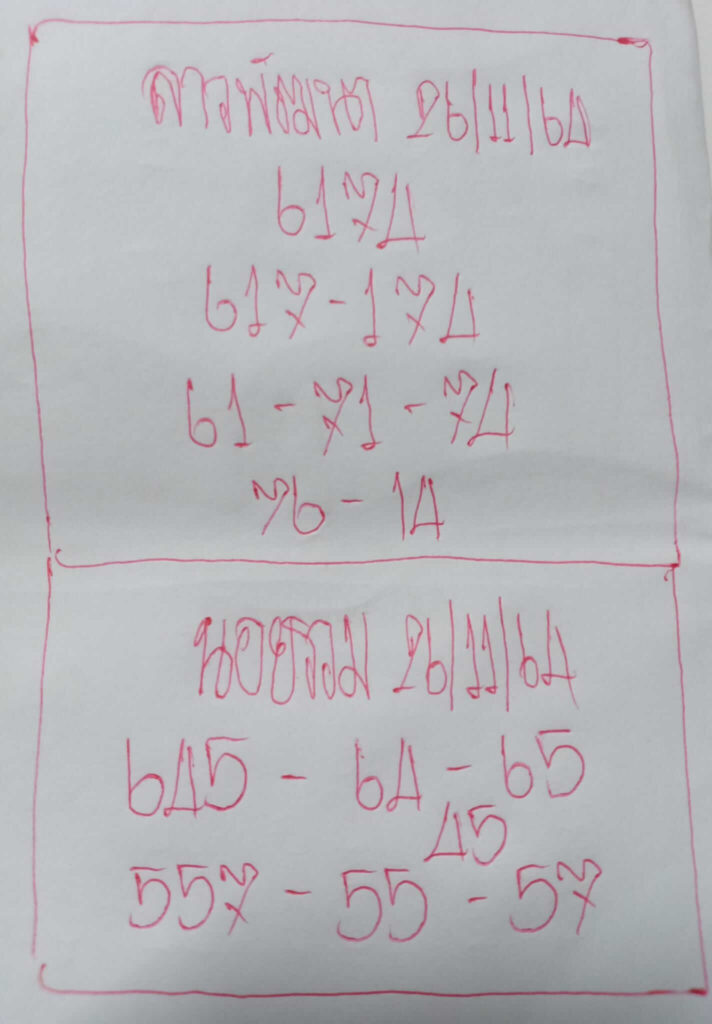 ลาวพัฒนา 26/11/64
6174
617-174
61-71-74
76-14
นอยรวม 26/11/64
645 - 64 - 65
45
557 - 55 - 57